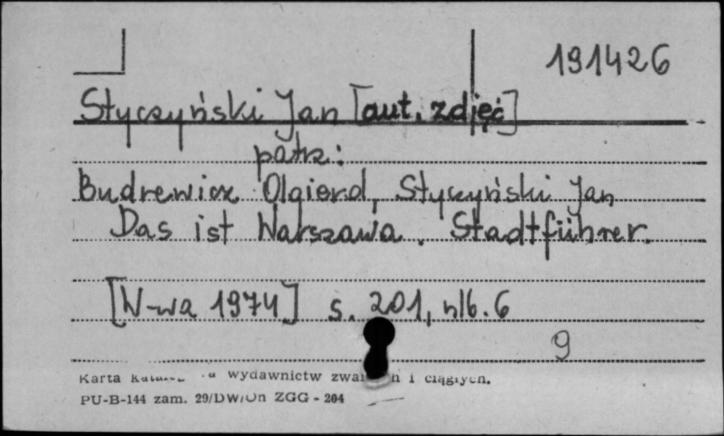 191426
Styczyński Jan [aut. zdjęć]
patrz:
Budrewicz Olgierd, Styczyński Jan
Das ist Warszawa. Stadtführer.
[W-wa 1974] s. 201, nlb. 6
9
Karta wydawnictw i ciągłych.
PU-B-144 zam. 29/DW/On ZGG - 204